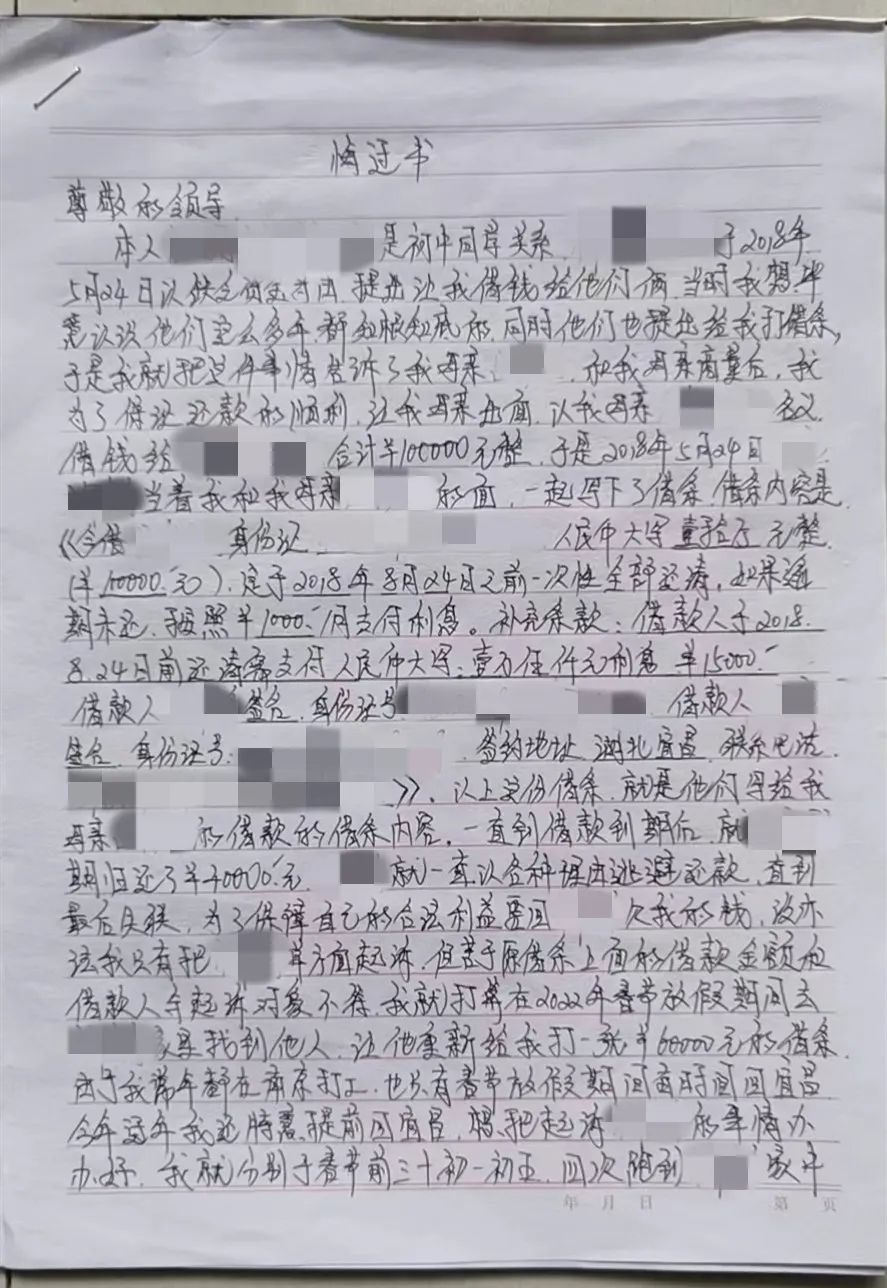 悔过书
尊敬的领导
本人 是初中同学关系. 于2018年
5月24日以缺乏资金为由.提出让我借钱给他们俩.当时我想毕
竟认识他们这么多年.都知根知底的.同时他们也提出给我打借条,
于是我就把这件事情告诉了我母亲. 和我母亲商量后,我
为了保证还款的顺利.让我母亲出面.以我母亲 名义
借钱给 合计¥100000元整.于是2018年5月24日
当着我和我母亲 的面,一起写下了借条.借条内容是
《今借 身份证 人民币大写 壹拾万 元整.
(¥100000.元).定于2018年8月24日之前一次性全部还清,如果逾
期未还.按照¥1000.-/月支付利息。补充条款:借款人于2018.
8.24日前还清需支付人民币大写:壹万伍仟元利息 ¥15000.-
借款人 签名.身份证号 借款人
签名.身份证号: .签约地址 湖北宜昌.联系电话.
》.以上这份借条.就是他们写给我
母亲 的借款的借条内容.一直到借款到期后.就
期归还了¥40000.元. 就一直以各种理由逃避还款.直到
最后失联,为了保障自己的合法利益要回 欠我的钱,没办
法我只有把 单方面起诉.但苦于原借条上面的借款金额和
借款人与起诉对象不符.我就打算在2022年春节放假期间去
家里找到他人.让他重新给我打一张¥60000元的借条.
由于我常年都在南京打工.也只有春节放假期间有时间回宜昌
今年过年我还特意提前回宜昌.想把起诉 的事情办
办好.我就分别于春节前三十初一初五.四次跑到 家中
年 月 日 第 页